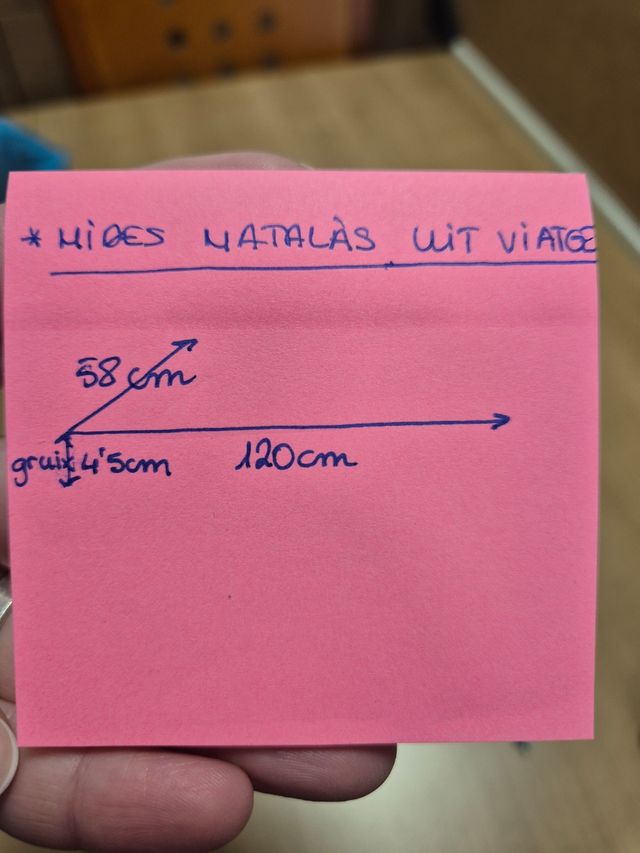 * MIDES MATALÀS LLIT VIATGE
58 cm
gruix 4'5cm 120cm